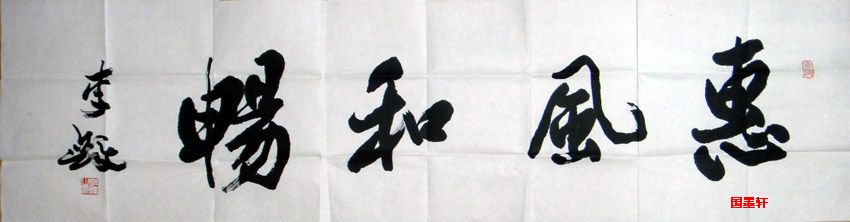 惠風和暢
李鐸
国墨轩